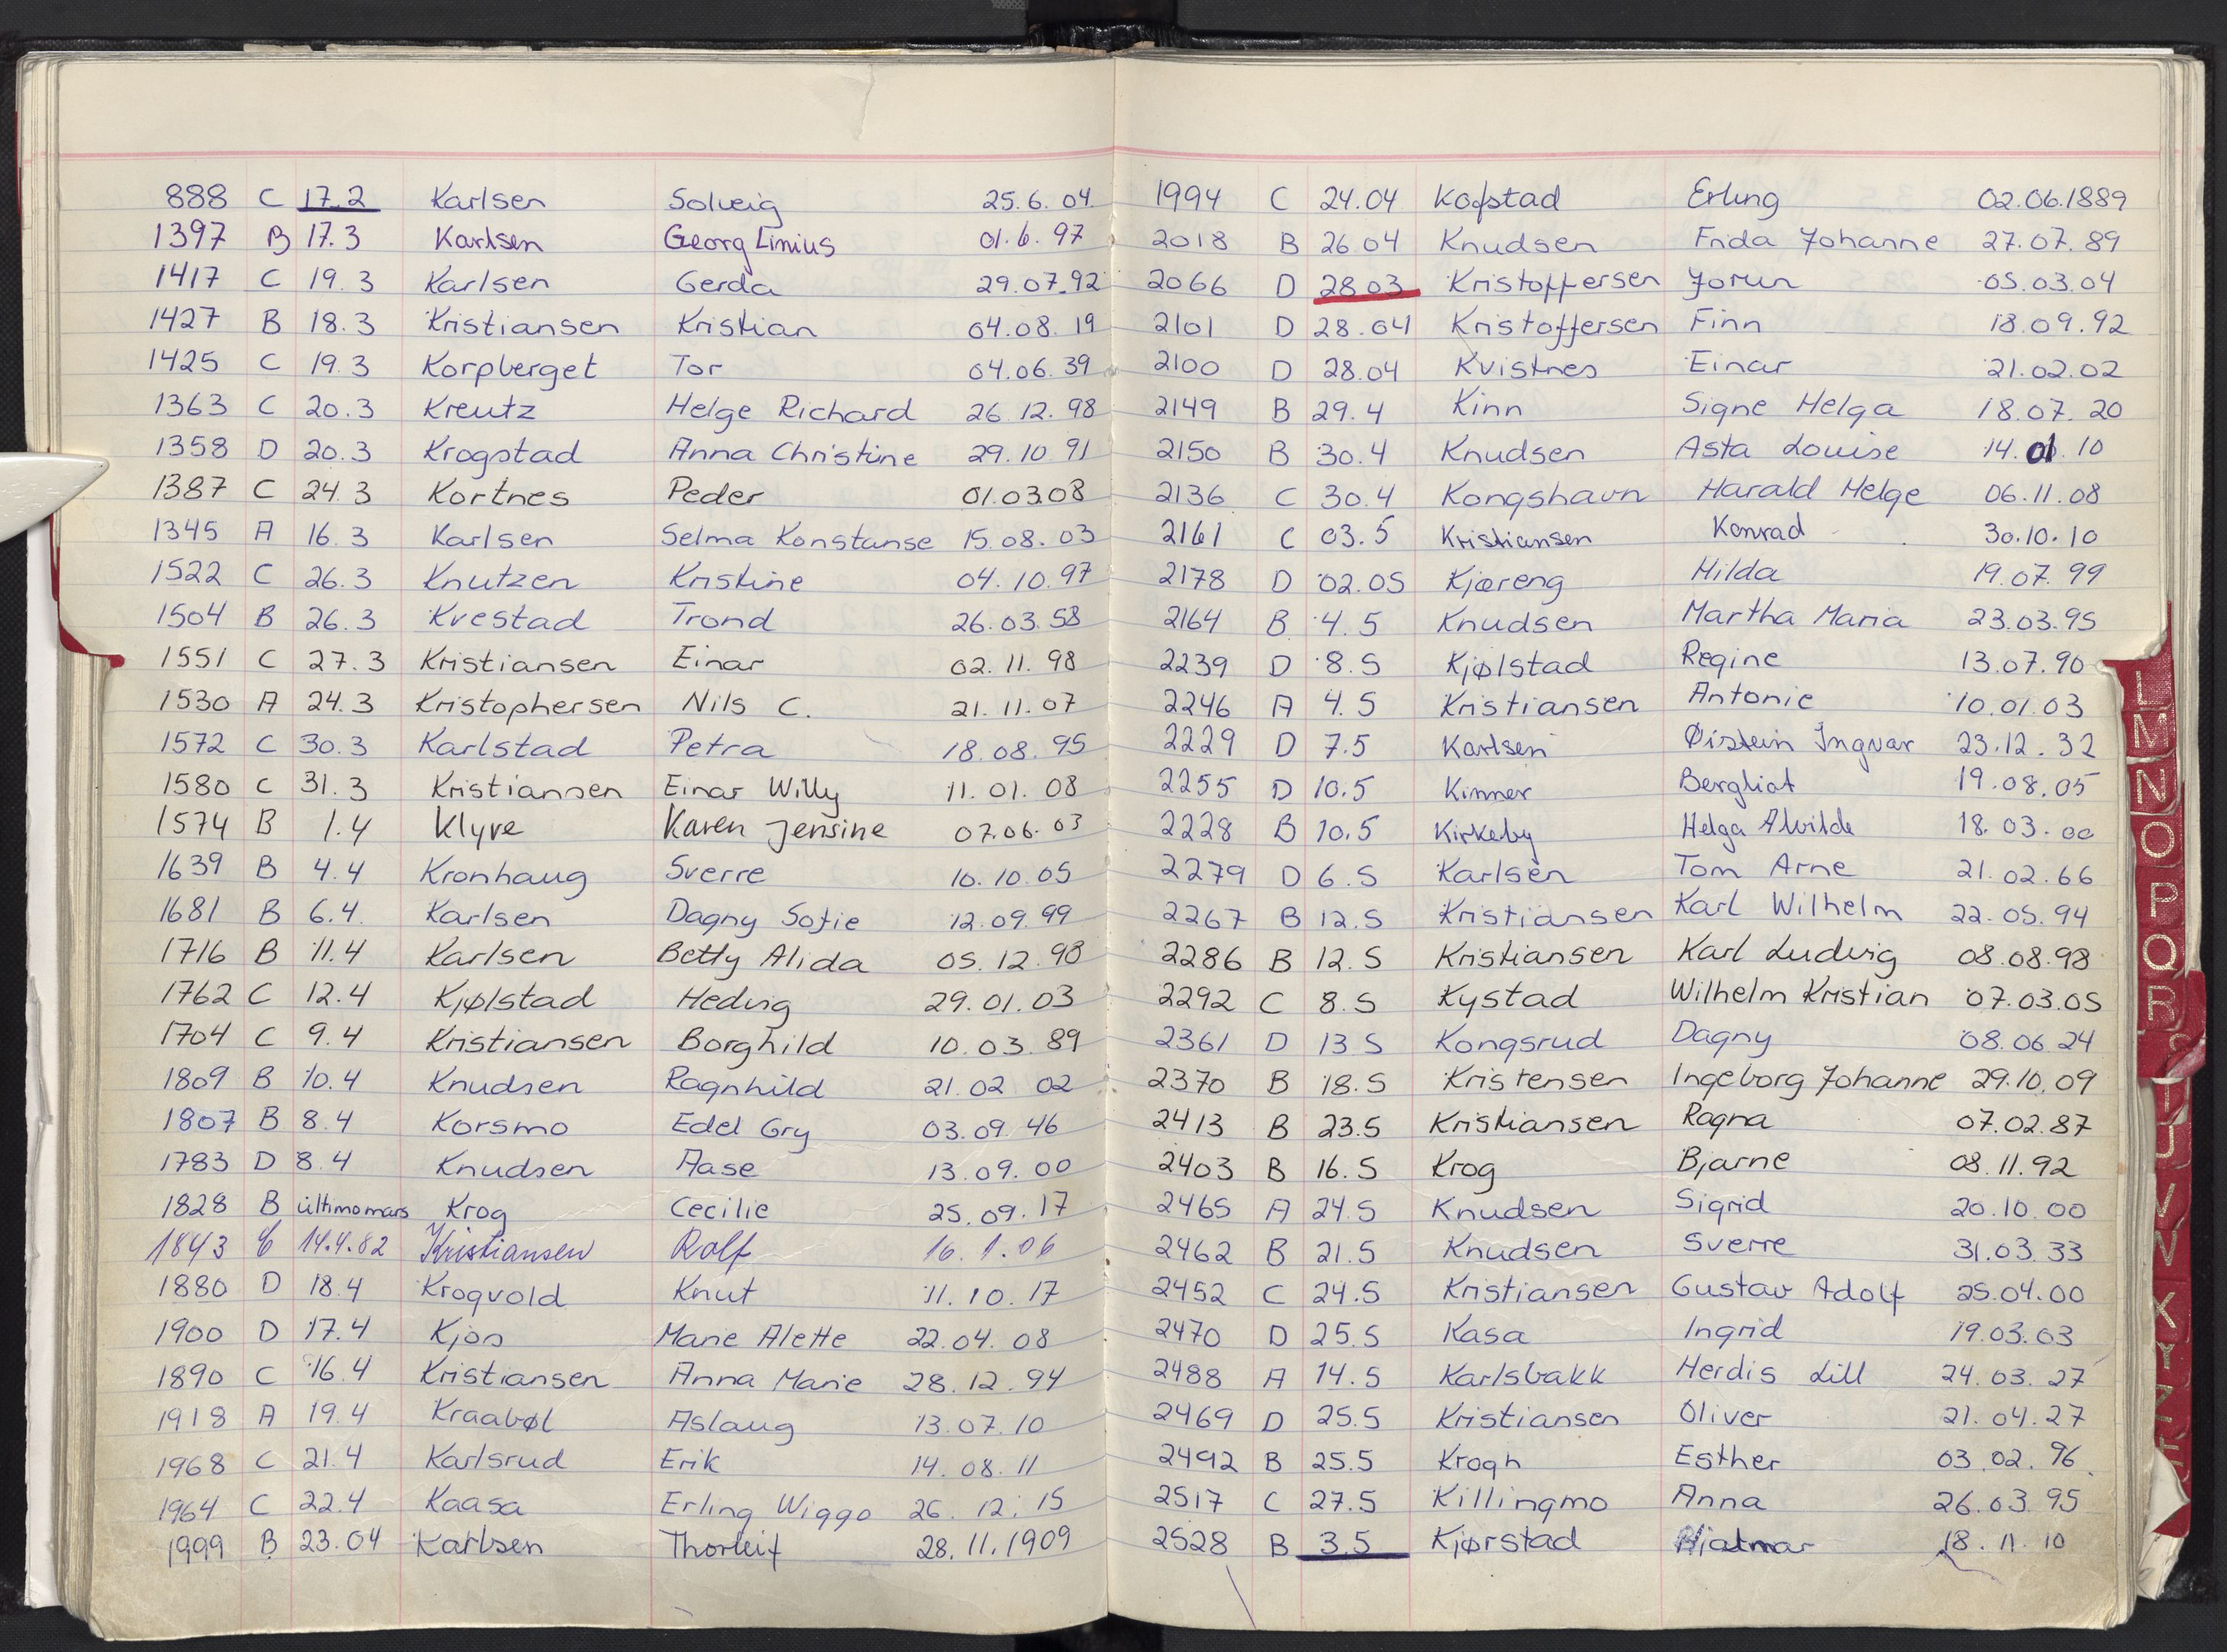 888 C 17.2 Karlsen Solveig 25.6.04.
1397 B 17.3 Karlsen Georg Linius 01.6.97
1417 C 19.3 Karlsen Gerda 29.07.92
1427 B 18.3 Kristiansen Kristian 04.08.19
1425 C 19.3 Korpberget Tor 04.06.39
1363 C 20.3 Kreutz Helge Richard 26.12.98
1358 D 20.3 Krogstad Anna Christine 29.10.91
1387 C 24.3 Kortnes Peder 01.03.08
1345 A 16.3 Karlsen Selma Konstanse 15.08.03
1522 C 26.3 Knutzen Kristine 04.10.97
1504 B 26.3 Kvestad Trond 26.03.58
1551 C 27.3 Kristiansen Einar 02.11.98
1530 A 24.3 Kristophersen Nils C. 21.11.07
1572 C 30.3 Karlstad Petra 18.08.95
1580 C 31.3 Kristiansen Einar Willy 11.01.08
1574 B 1.4 Klyve Karen Jensine 07.06.03
1639 B 4.4 Kronhaug Sverre 10.10.05
1681 B 6.4. Karlsen Dagny Sofie 12.09.99
1716 B 11.4 Karlsen Betty Alida 05.12.98
1762 C 12.4 Kjølstad Hedvig 29.01.03
1704 C 9.4 Kristiansen Borghild 10.03.89
1809 B 10.4 Knudsen Ragnhild 21.02 02
1807 B 8.4 Korsmo Edel Gry 03.09 46
1783 D 8.4 Knudsen Aase 13.09.00
1828 B ultimo mars Krog Cecilie 25.09.17
1843 C 14.4.82 Kristiansen Rolf 16.1.06
1880 D 18.4 Krogvold Knut 11.10.17
1900 D 17.4 Kjos Marie Alette 22.04.08
1890 C 16.4 Kristiansen Anna Marie 28.12.94
1918 A 19.4 Kraabøl Aslaug 13.07.10
1968 C 21.4 Karlsrud Erik 14.08.11
1964 C 22.4 Kaasa Erling Wiggo 26.12.15
1999 B 23.04 Karlsen Thorleif 28.11.1909
1994 C 24.04 Kofstad Erling 02.06.1889
2018 B 26.04 Knudsen Frida Johanne 27.07.89
2066 D 28.03 Kristoffersen Jorun 05.03.04
2101 D 28.04 Kristoffersen Finn 18.09.92
2100 D 28.04 Kvistnes Einar 21.02.02
2149 B 29.4 Kinn Signe Helga 18.07.20
2150 B 30.4 Knudsen Asta Louise 14.01.10
2136 C 30.4 Kongshavn Harald Helge 06.11.08
2161 C 03.5 Kristiansen Konrad 30.10.10
2178 D 02.05 Kjæreng Hilda 19.07.99
2164 B 4.5 Knudsen Martha Maria 23.03.95
2239 D 8.5 Kjølstad Regine 13.07.90
2246 A 4.5 Kristiansen Antonie 10.01.03
2229 D 7.5 Karlsen Øistein Ingvar 23.12.32
2255 D 10.5 Kinner Bergliot 19.08.05
2228 B 10.5 Kirkeby Helga Alvilde 18.03.00
2279 D 6.5 Karlsen Tom Arne 21.02.66
2267 B 12.5 Kristiansen Karl Wilhelm 22.05.94
2286 B 12.5 Kristiansen Karl Ludvig 08.08.98
2292 C 8.5 Kystad Wilhelm Kristian 07.03.05
2361 D 13 5 Kongsrud Dagny 08.06 24
2370 B 18.5 Kristensen Ingeborg Johanne 29.10.09
2413 B 23.5 Kristiansen Ragna 07.02.87
2403 B 16.5 Krog Bjarne 08.11.92
2465 A 24.5 Knudsen Sigrid 20.10.00
2462 B 21.5 Knudsen Sverre 31.03.33
2452 C 24.5 Kristiansen Gustav Adolf 25.04.00
2470 D 25.5 Kasa Ingrid 19.03.03
2488 A 14.5 Karlsbakk Herdis Lill 24.03.27
2469 D 25.5 Kristiansen Oliver 21.04.27
2492 B 25.5 Krogh Esther 03.02.96
2517 C 27.5 Killingmo Anna 26.03.95
2528 B 3.5 Kjørstad Hjalmar 18.11.10
L
M
N
O
P
Q
R
S
T
U
V
W
X
Y
Z
Æ